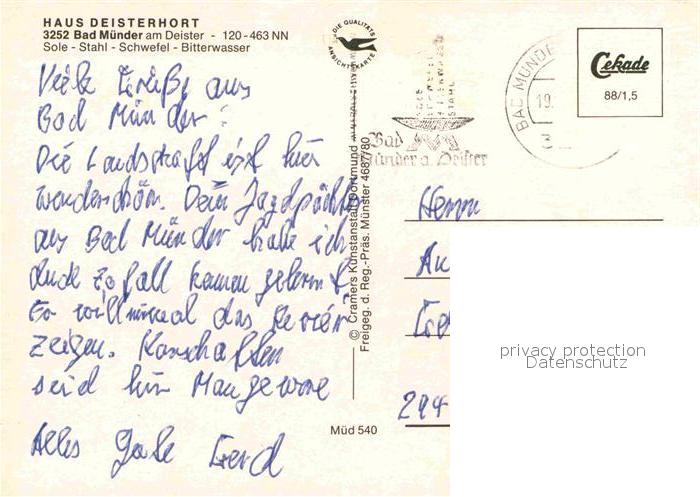 HAUS DEISTERHORT
3252 Bad Münder am Deister - 120-463 NN
Sole - Stahl - Schwefel - Bitterwasser
DIE QUALITÄTS
ANSICHTSKARTE
BAD MÜNDE
19.
3
Cekade
88/1,5
Bad
Münder a. Deister
Viele Grüße aus
Bad Münder:
Die Landschaft ist hier
wunderschön. Dein Jagdpächter
aus Bad Münder habe ich
durch Zufall kennen gelernt
Er will mir mal das Revier
zeigen.
seid hier Mangelware
Alles Gute Gerd
© Cramers Kunstanstalt Dortmund
Freigeg. d. Reg.-Präs. Münster 4687/80
Müd 540
Herrn
An
294
privacy protection
Datenschutz